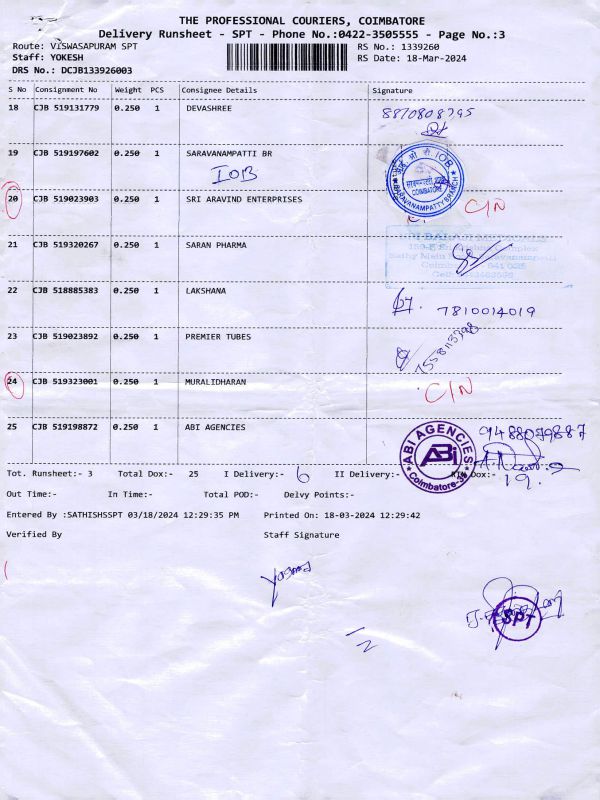 THE PROFESSIONAL COURIERS, COIMBATORE
Delivery Runsheet - SPT - Phone No.:0422-3505555 - Page No.:3
Route: VISWASAPURAM SPT
RS No.: 1339260
Staff: YOKESH
RS Date: 18-Mar-2024
DRS No.: DCJB133926003
S No Consignment No Weight PCS Consignee Details Signature
18 CJB 519131779 0.250 1 DEVASHREE
8870808795
19 CJB 519197602 0.250 1 SARAVANAMPATTI BR
IOB
IOB
COIMBATORE
SARAVANAMPATTY BRANCH
20 CJB 519023903 0.250 1 SRI ARAVIND ENTERPRISES C/N
21 CJB 519320267 0.250 1 SARAN PHARMA
22 CJB 518885383 0.250 1 LAKSHANA
7810014019
23 CJB 519023892 0.250 1 PREMIER TUBES
24 CJB 519323001 0.250 1 MURALIDHARAN C/N
25 CJB 519198872 0.250 1 ABI AGENCIES
ABI AGENCIES
ABi
Coimbatore-35
9488079887
Tot. Runsheet:- 3 Total Dox:- 25 I Delivery:- 6 II Delivery:- Dox:- 19.
Out Time:- In Time:- Total POD:- Delvy Points:-
Entered By :SATHISHSSPT 03/18/2024 12:29:35 PM Printed On: 18-03-2024 12:29:42
Verified By Staff Signature
SPT